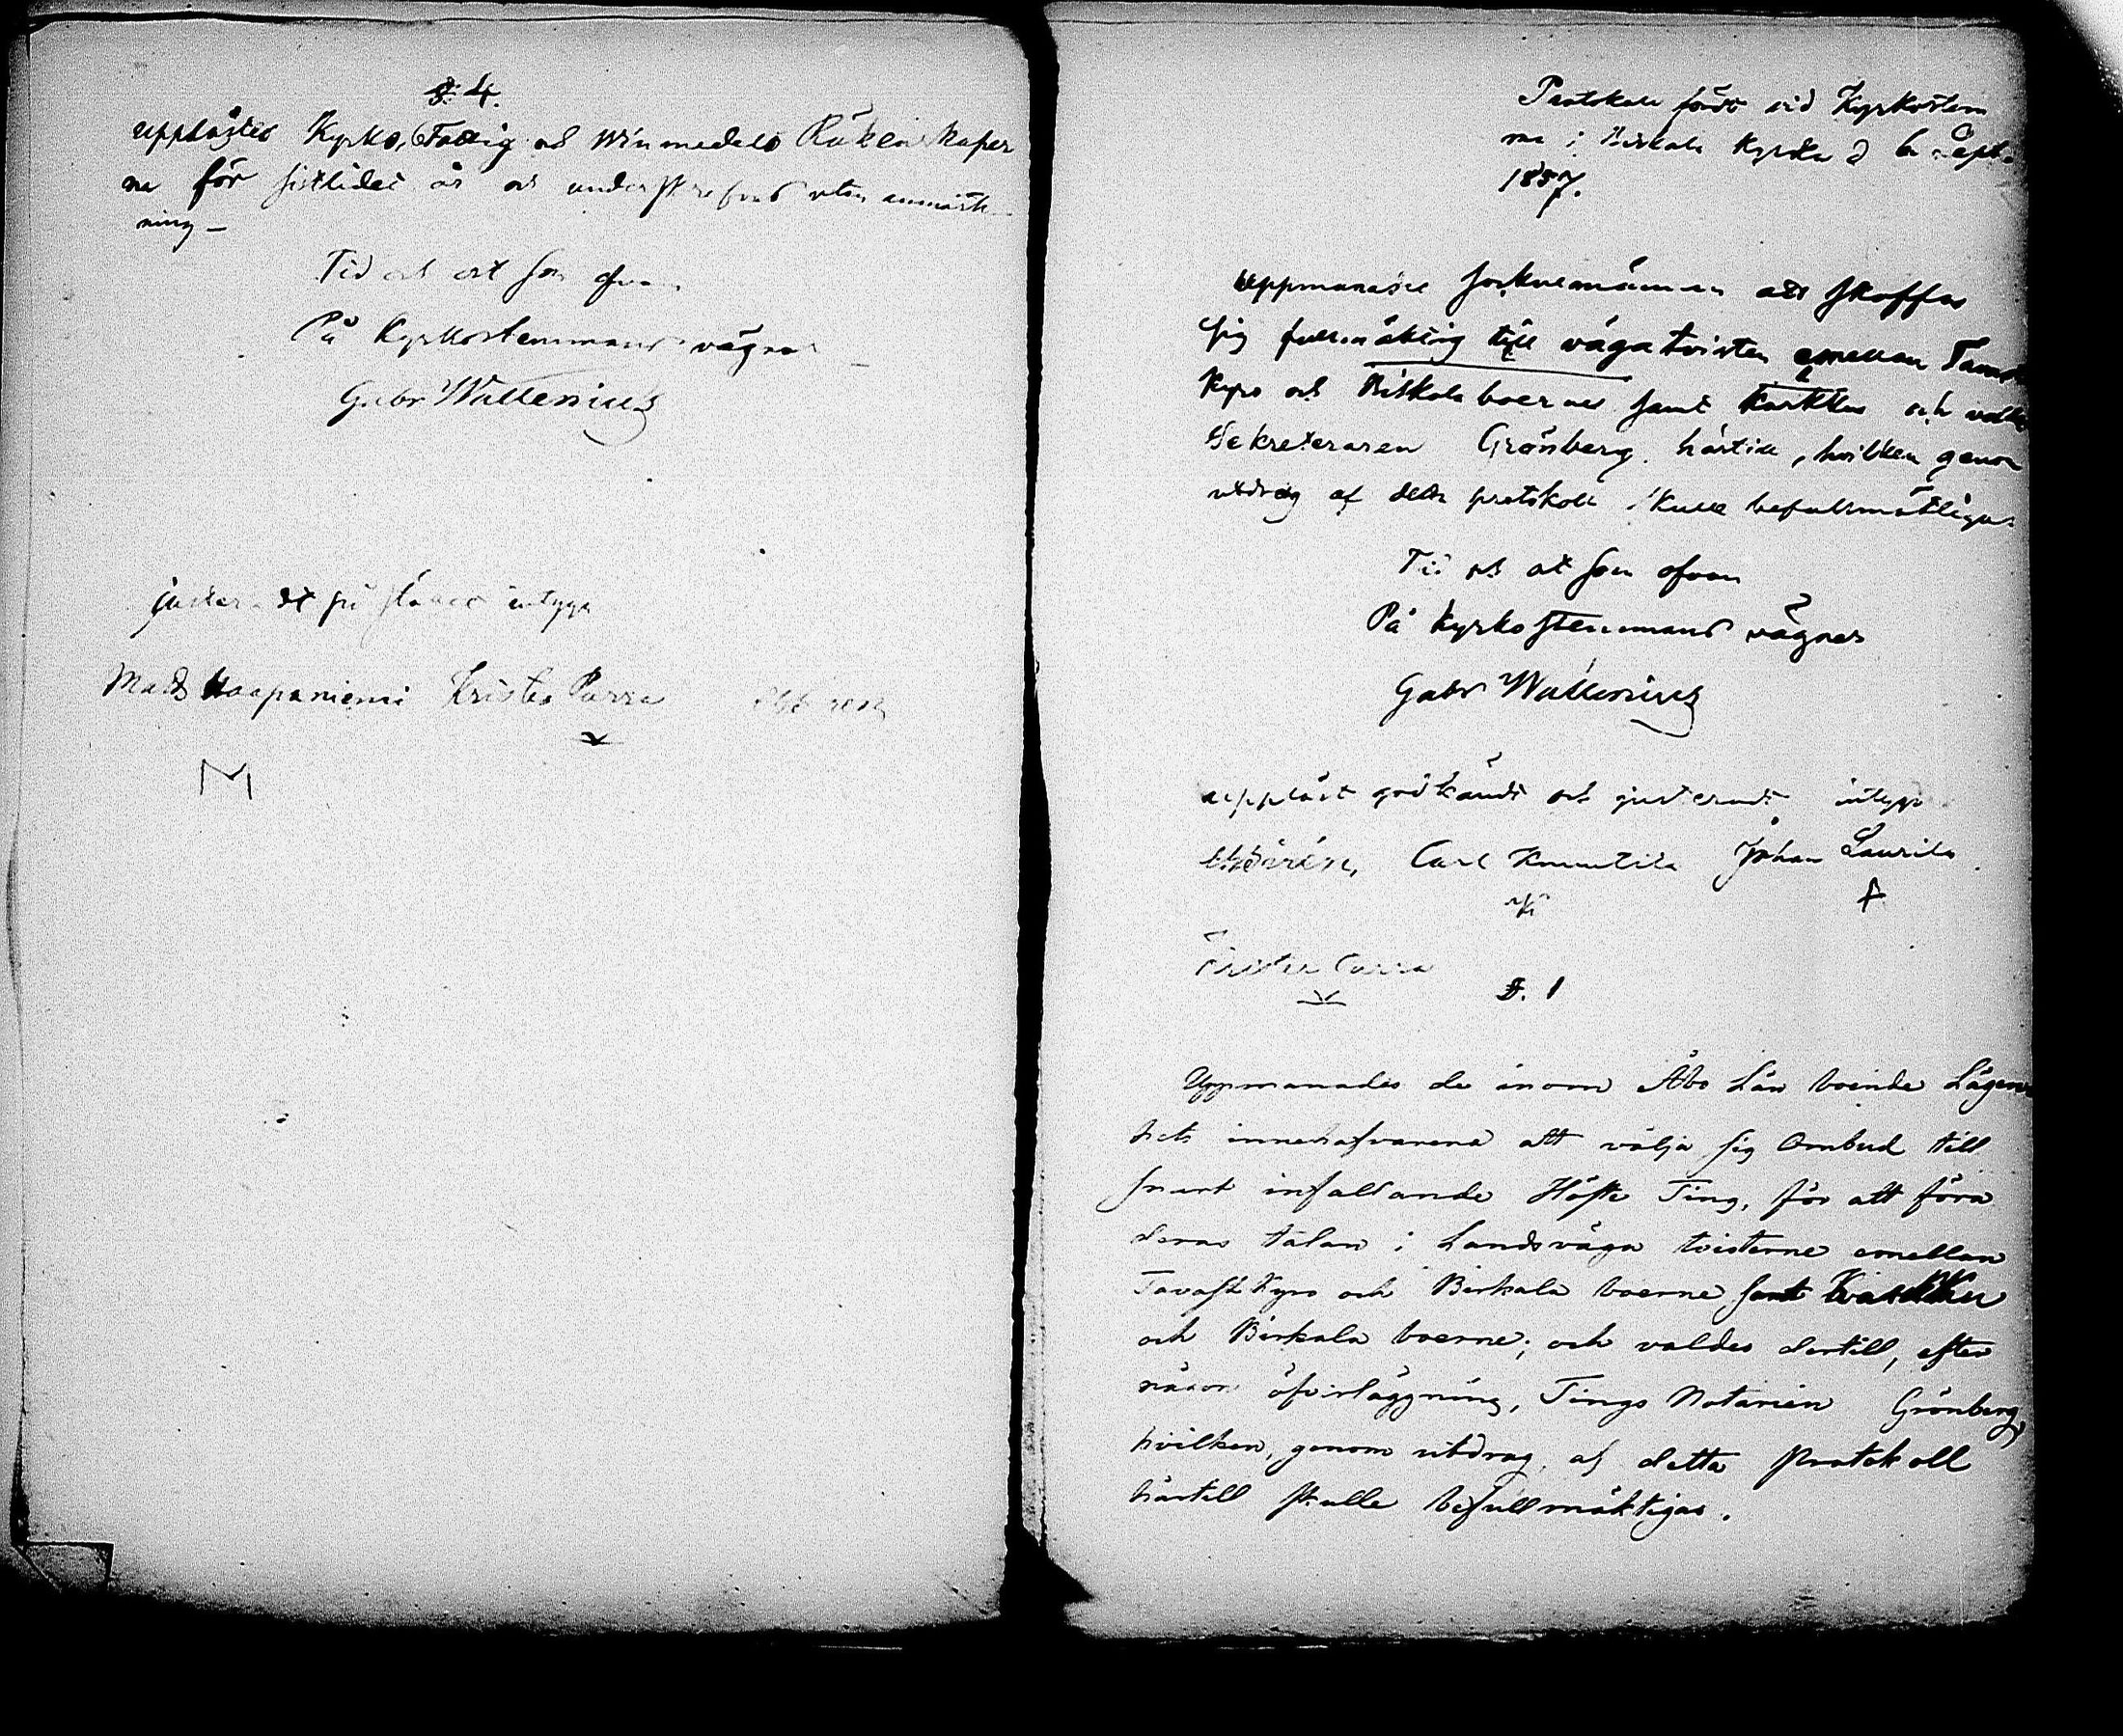 §. 4.
upplästes Kyrko, Fattig och Winmedels Räkenskaper
ne för sistlidet år och underskrefvos utan anmärk
ning –
Tid och ort som ofvan
På Kyrkostemmans vägnar
Gabr Wallenius
justeradt på stället intyga
Mats Haapaniemi Krister Parra
M
Protokoll fördt vid Kyrkostem
ma i Birkala Kyrka d 6 Sept.
1857.
uppmanades socknemännen att skaffa
sig fullmäktig till vägatvisten emellan Tavast
Kyro och Birkala boerne samt Karkku och valdes
Sekreteraren Grönberg härtill, hvilken genom
utdrag af detta protokoll skulle befullmäktigas
Tid och ort som ofvan
På Kyrkostemmans vägnar
Gabr Wallenius
uppläst godkändt och justeradt intyga
Carl Knuutila Johan Laurila
Krister Parra
§. 1
Uppmanades de inom Åbo Län boende Lägen
hets innehafvarena att välja sig Ombud till
snart infallande Höste Ting, för att föra
deras talan i Landsväga tvisterne emellan
Tavast Kyro och Birkala boerne samt Karkku
och Birkala boerne; och valdes dertill, efter
någon öfverläggning, Tings Notarien Grönberg,
hvilken, genom utdrag af detta Protokoll
härtill skulle befullmäktigas.